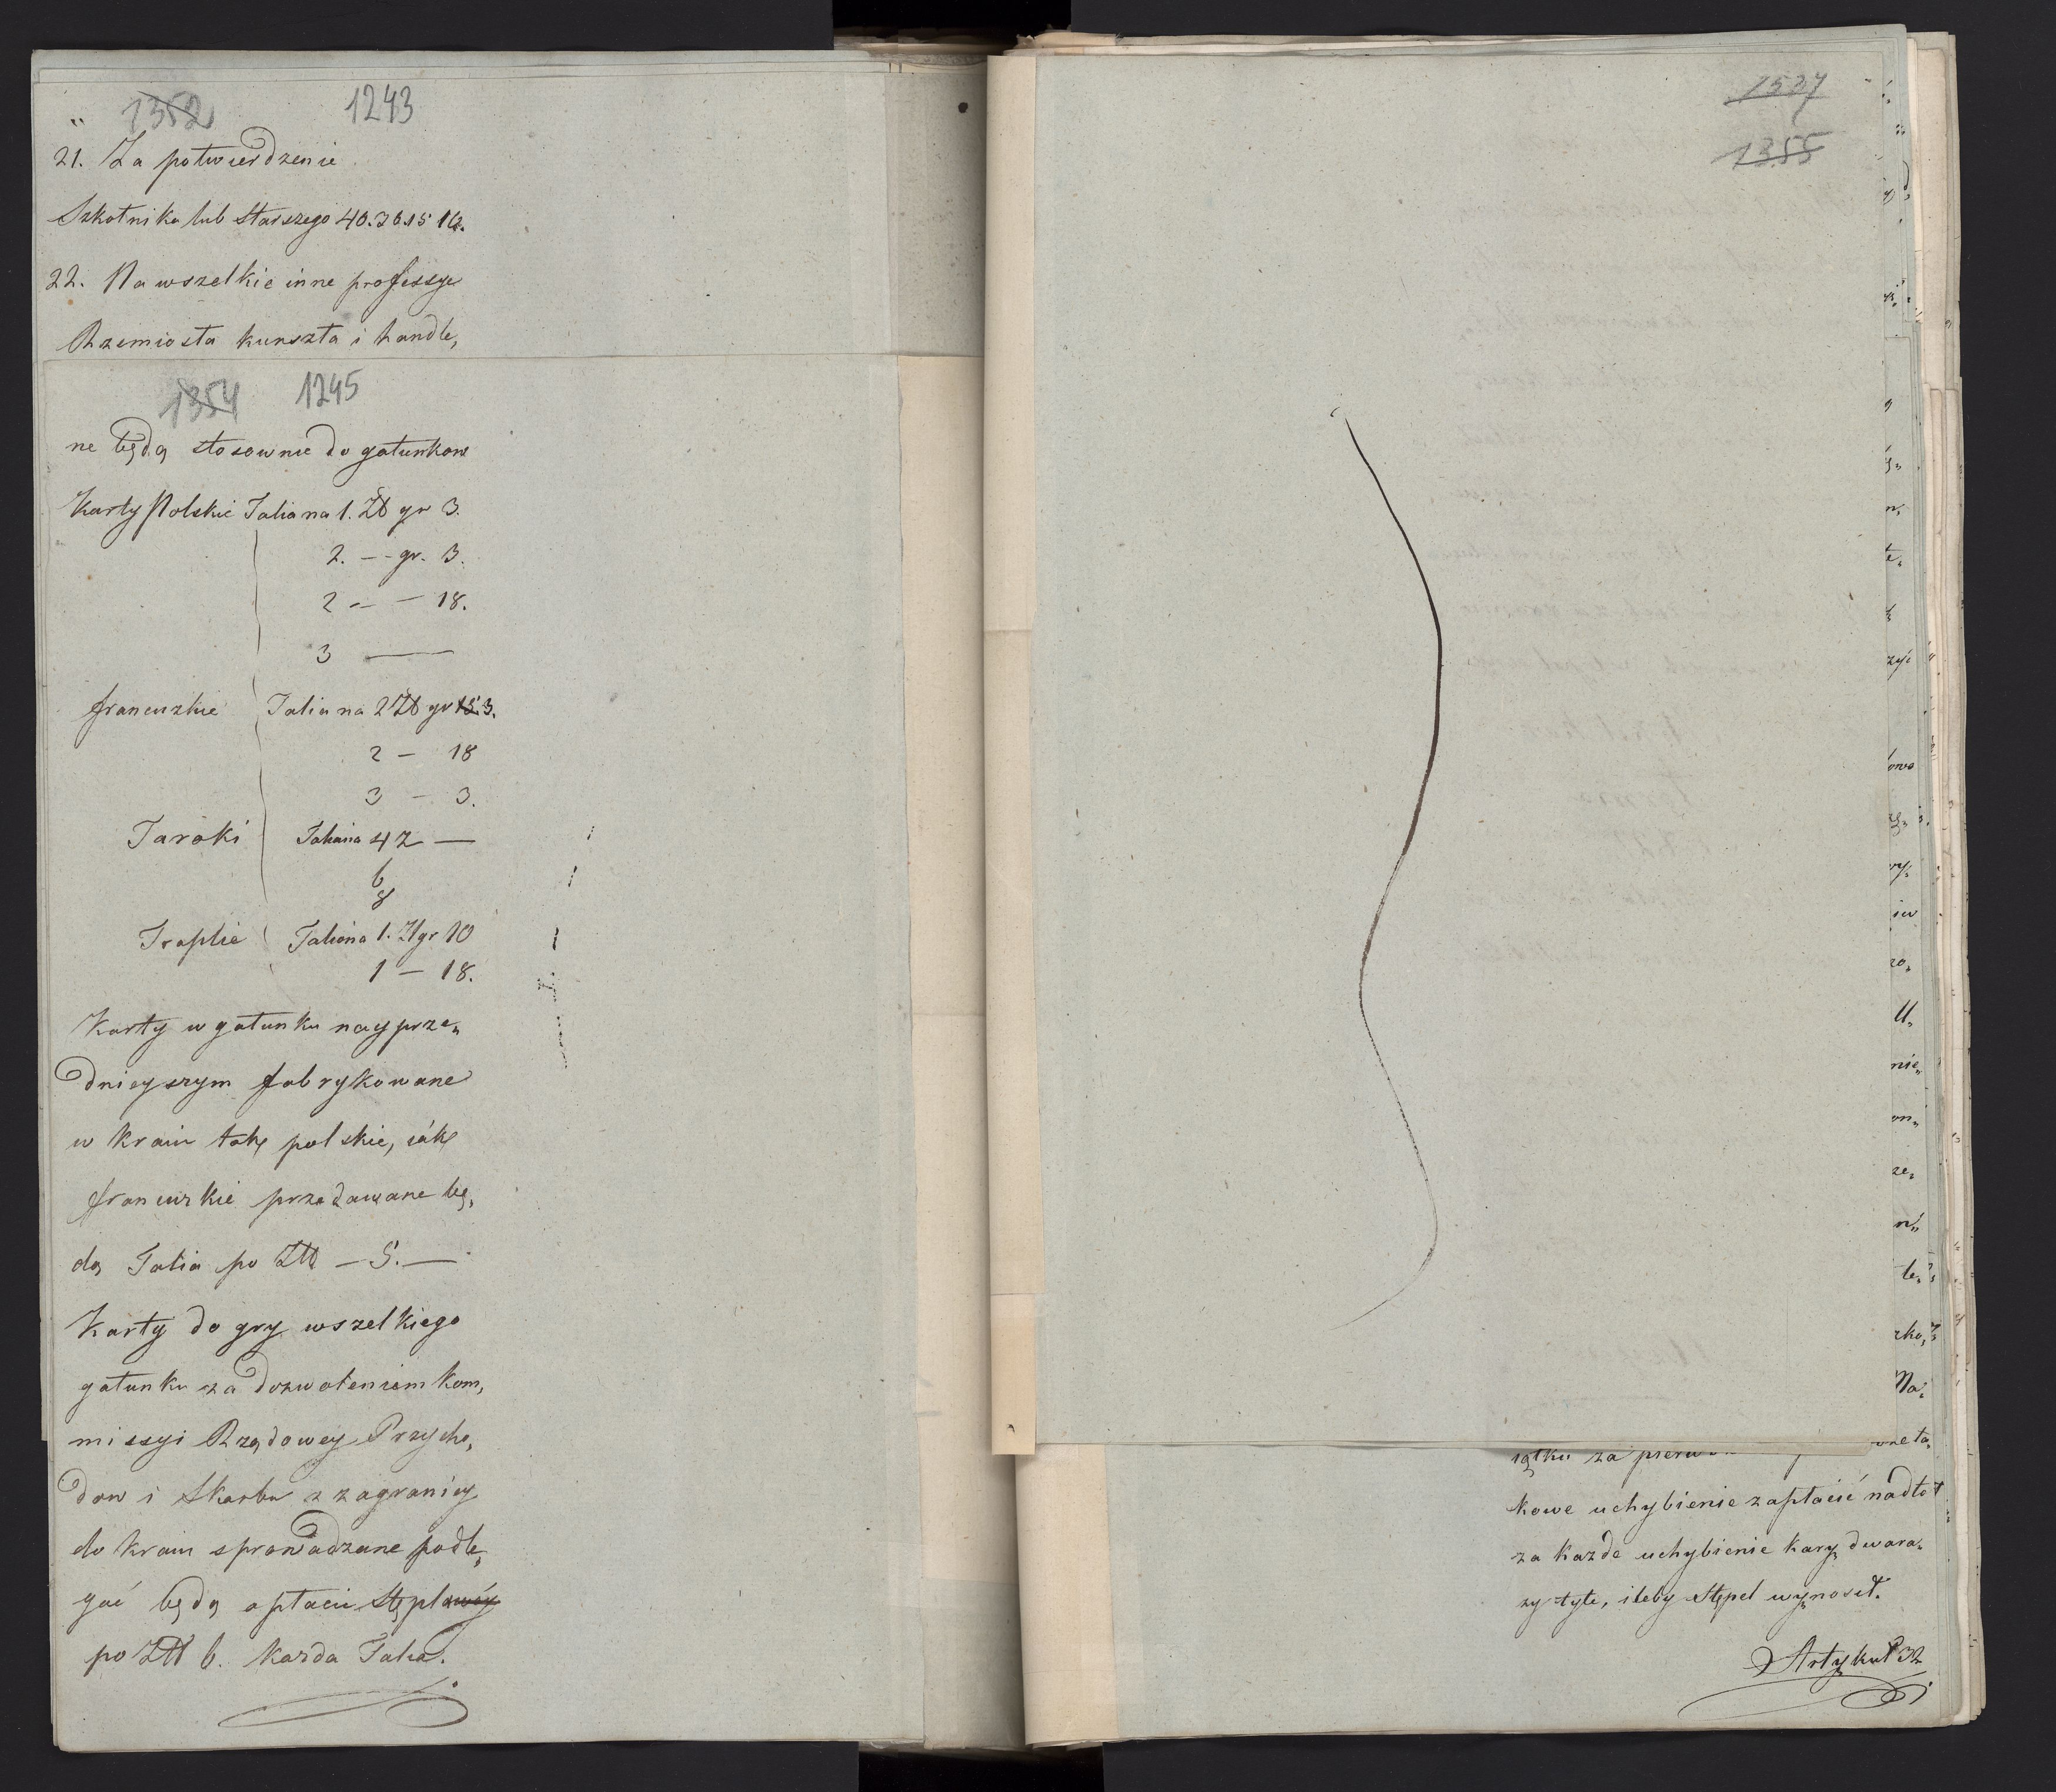 1352 1243
21. Za potwierdzenie
Szkolnika lub Starszego 40.30.15 10.
22. Na wszelkie inne professye
Rzemiosła kunszta i handle,
1354 1245
ne będą stosownie do gatunkow
Karty Polskie Talia na 1. Zł gr 3.
2. — gr. 3.
2 — — 18.
3 —
francuzkie Talia na 2 Zł gr 15 3.
2 — 18
3 — 3.
Taroki Talia na 4 Z —
6
8
Traplie Talia na 1. Zł gr 10
1 — 18.
Karty w gatunku nayprze„
dnieyszym fabrykowane
w kraiu tak polskie, iák
francuzkie przedawane bę„
dą Talia po Zło — 5. —
Karty do gry wszelkiego
gatunku za dozwoleniem kom„
missyi Rządowey Przycho„
dow i Skarbu z zagranicy
do kraiu sprowadzane podle„
gać będą opłacie Stęplowéy
po Złł 6. każda Talia.
1537
1355
iątku za pierw
kowe uchybienie zapłacić nadto
za każde uchybienie kary dwara„
zy tyle, ileby Stępel wynosił.
Artykuł 32